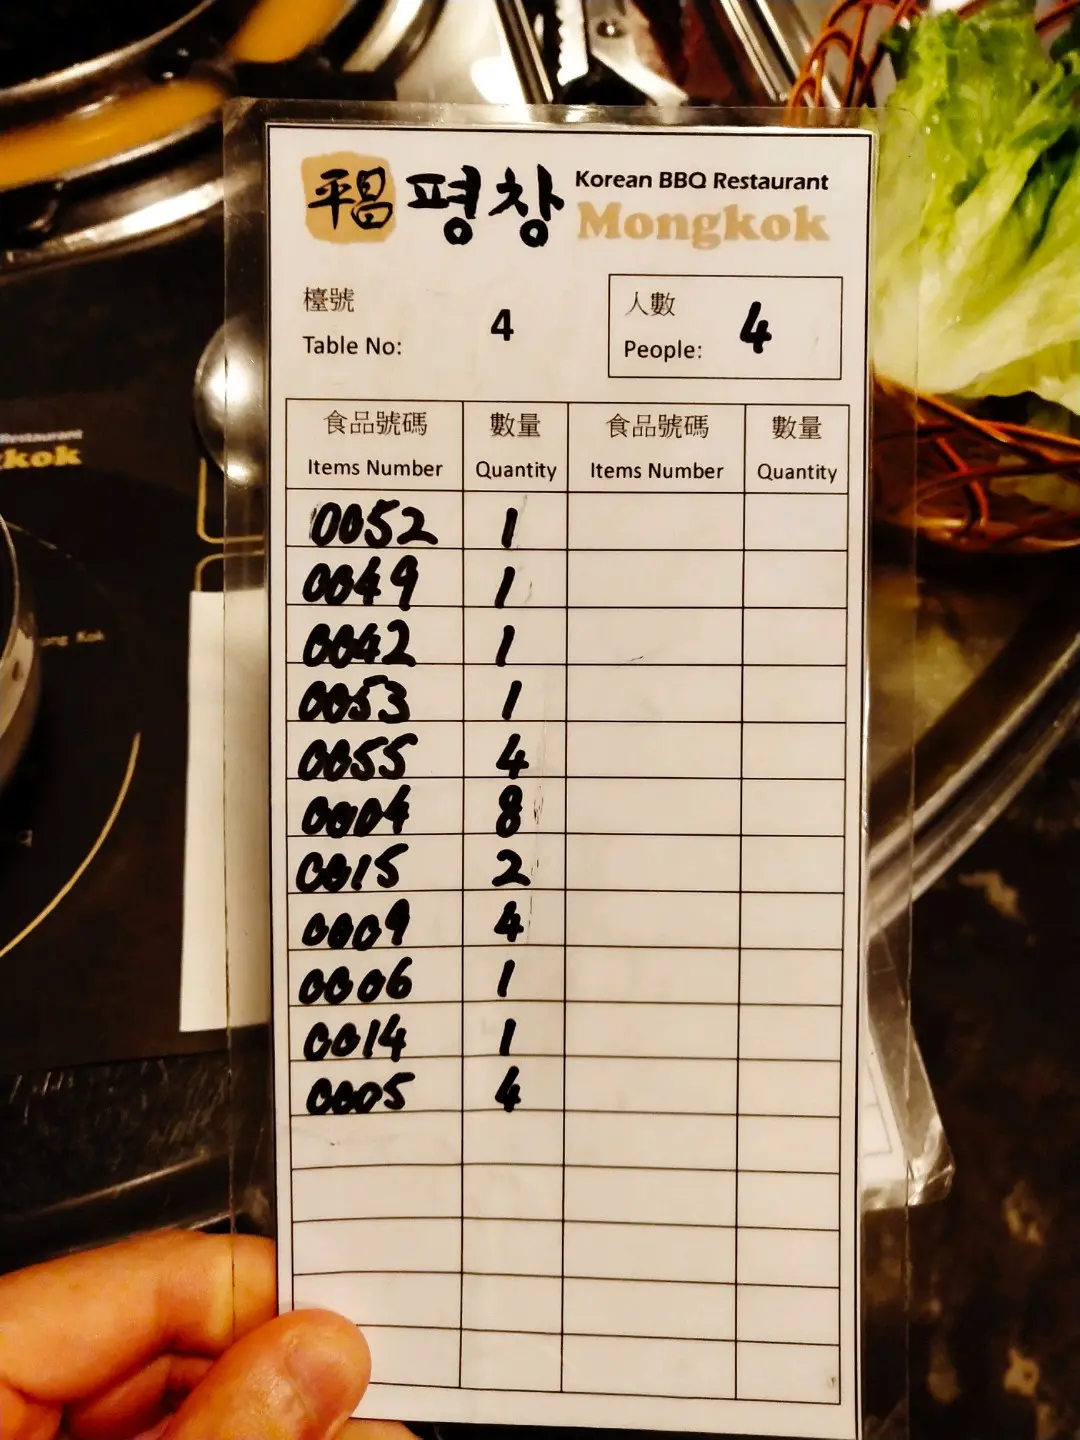 平昌 평창 Korean BBQ Restaurant
Mongkok
檯號
Table No: 4
人數
People: 4
食品號碼 數量 食品號碼 數量
Items Number Quantity Items Number Quantity
0052 1
0049 1
0042 1
0053 1
0055 4
0004 8
0015 2
0009 4
0006 1
0014 1
0005 4
Restaurant
kok
ong Kok